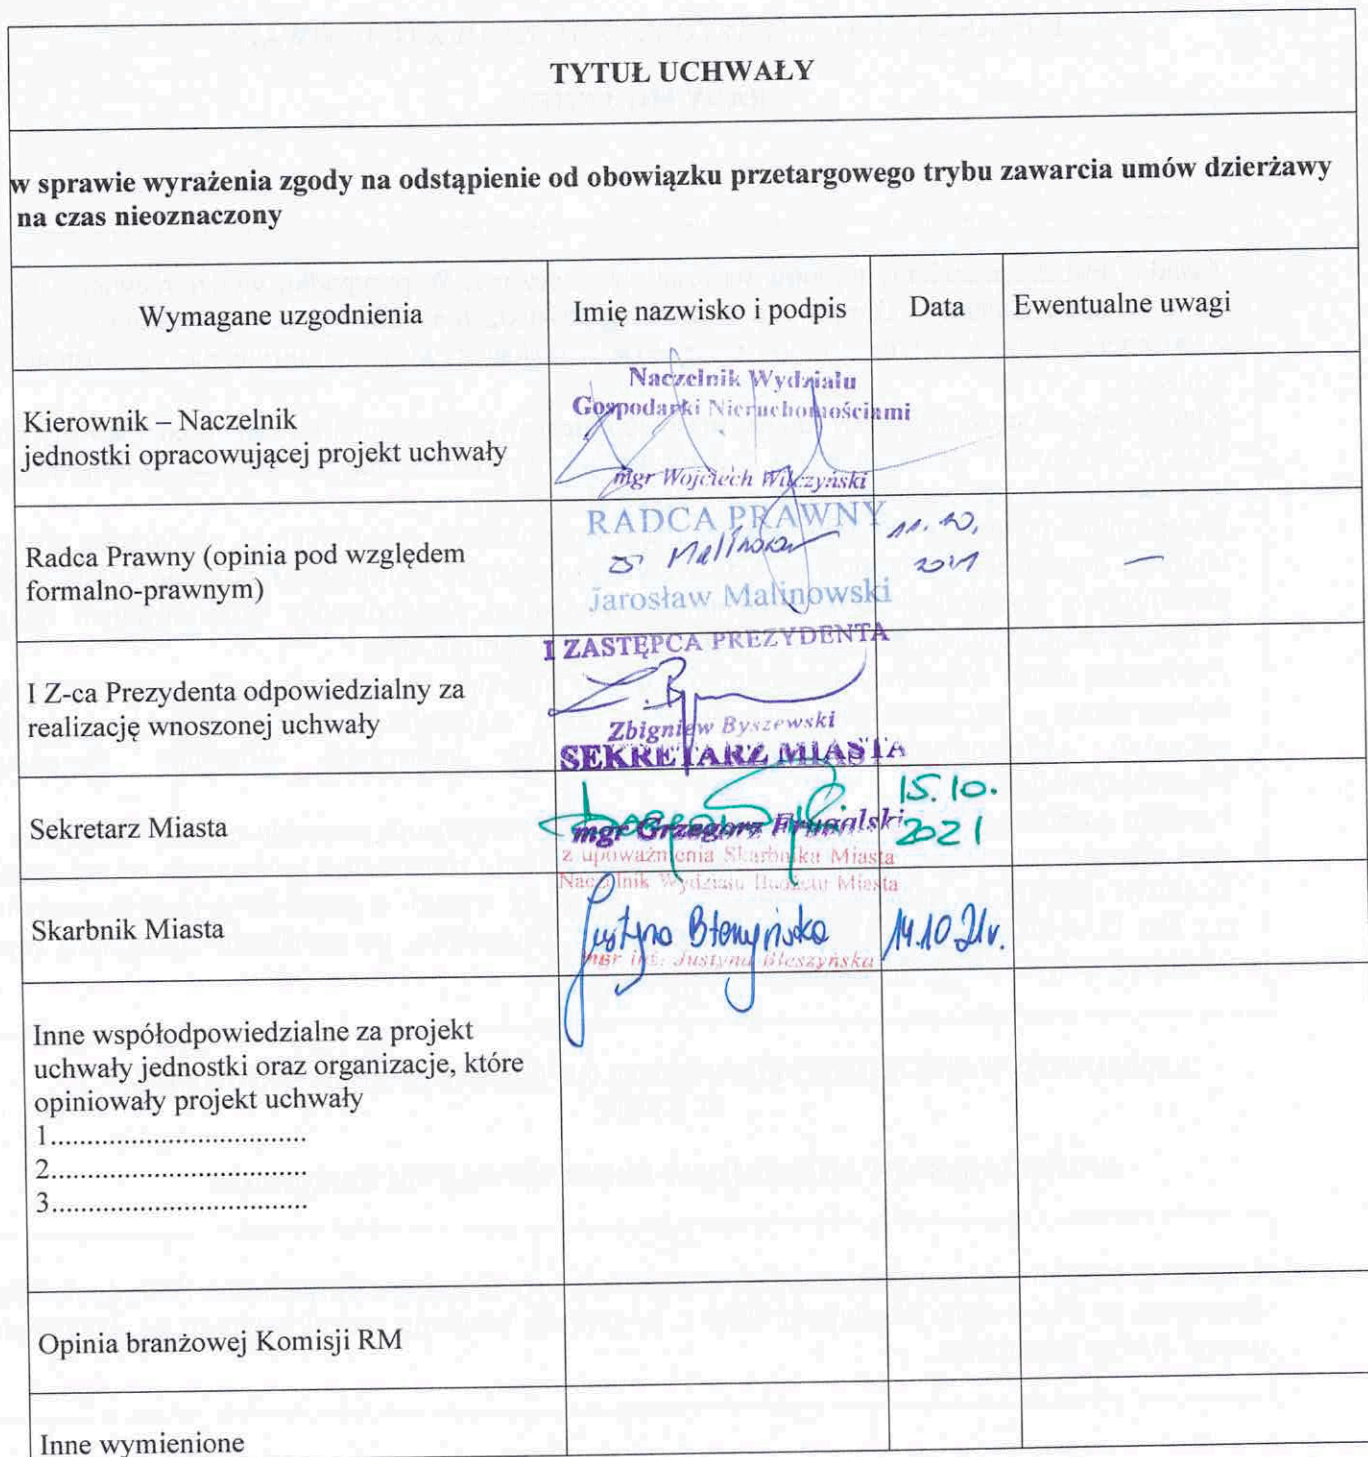 TYTUŁ UCHWAŁY
w sprawie wyrażenia zgody na odstąpienie od obowiązku przetargowego trybu zawarcia umów dzierżawy
na czas nieoznaczony
Wymagane uzgodnienia Imię nazwisko i podpis Data Ewentualne uwagi
Kierownik – Naczelnik
jednostki opracowującej projekt uchwały
Naczelnik Wydziału
Gospodarki Nieruchomościami
mgr Wojciech Wilczyński
Radca Prawny (opinia pod względem
formalno-prawnym)
RADCA PRAWNY
Malinowski
Jarosław Malinowski
11.10.
2021
—
I Z-ca Prezydenta odpowiedzialny za
realizację wnoszonej uchwały
I ZASTĘPCA PREZYDENTA
Zbigniew Byszewski
Sekretarz Miasta
SEKRETARZ MIASTA
mgr Grzegorz Frugalski
15.10.
2021
Skarbnik Miasta
z upoważnienia Skarbnika Miasta
Naczelnik Wydziału Budżetu Miasta
Justyna Błeszyńska
mgr inż. Justyna Błeszyńska
14.10.21r.
Inne współodpowiedzialne za projekt
uchwały jednostki oraz organizacje, które
opiniowały projekt uchwały
1..................................
2..................................
3..................................
Opinia branżowej Komisji RM
Inne wymienione